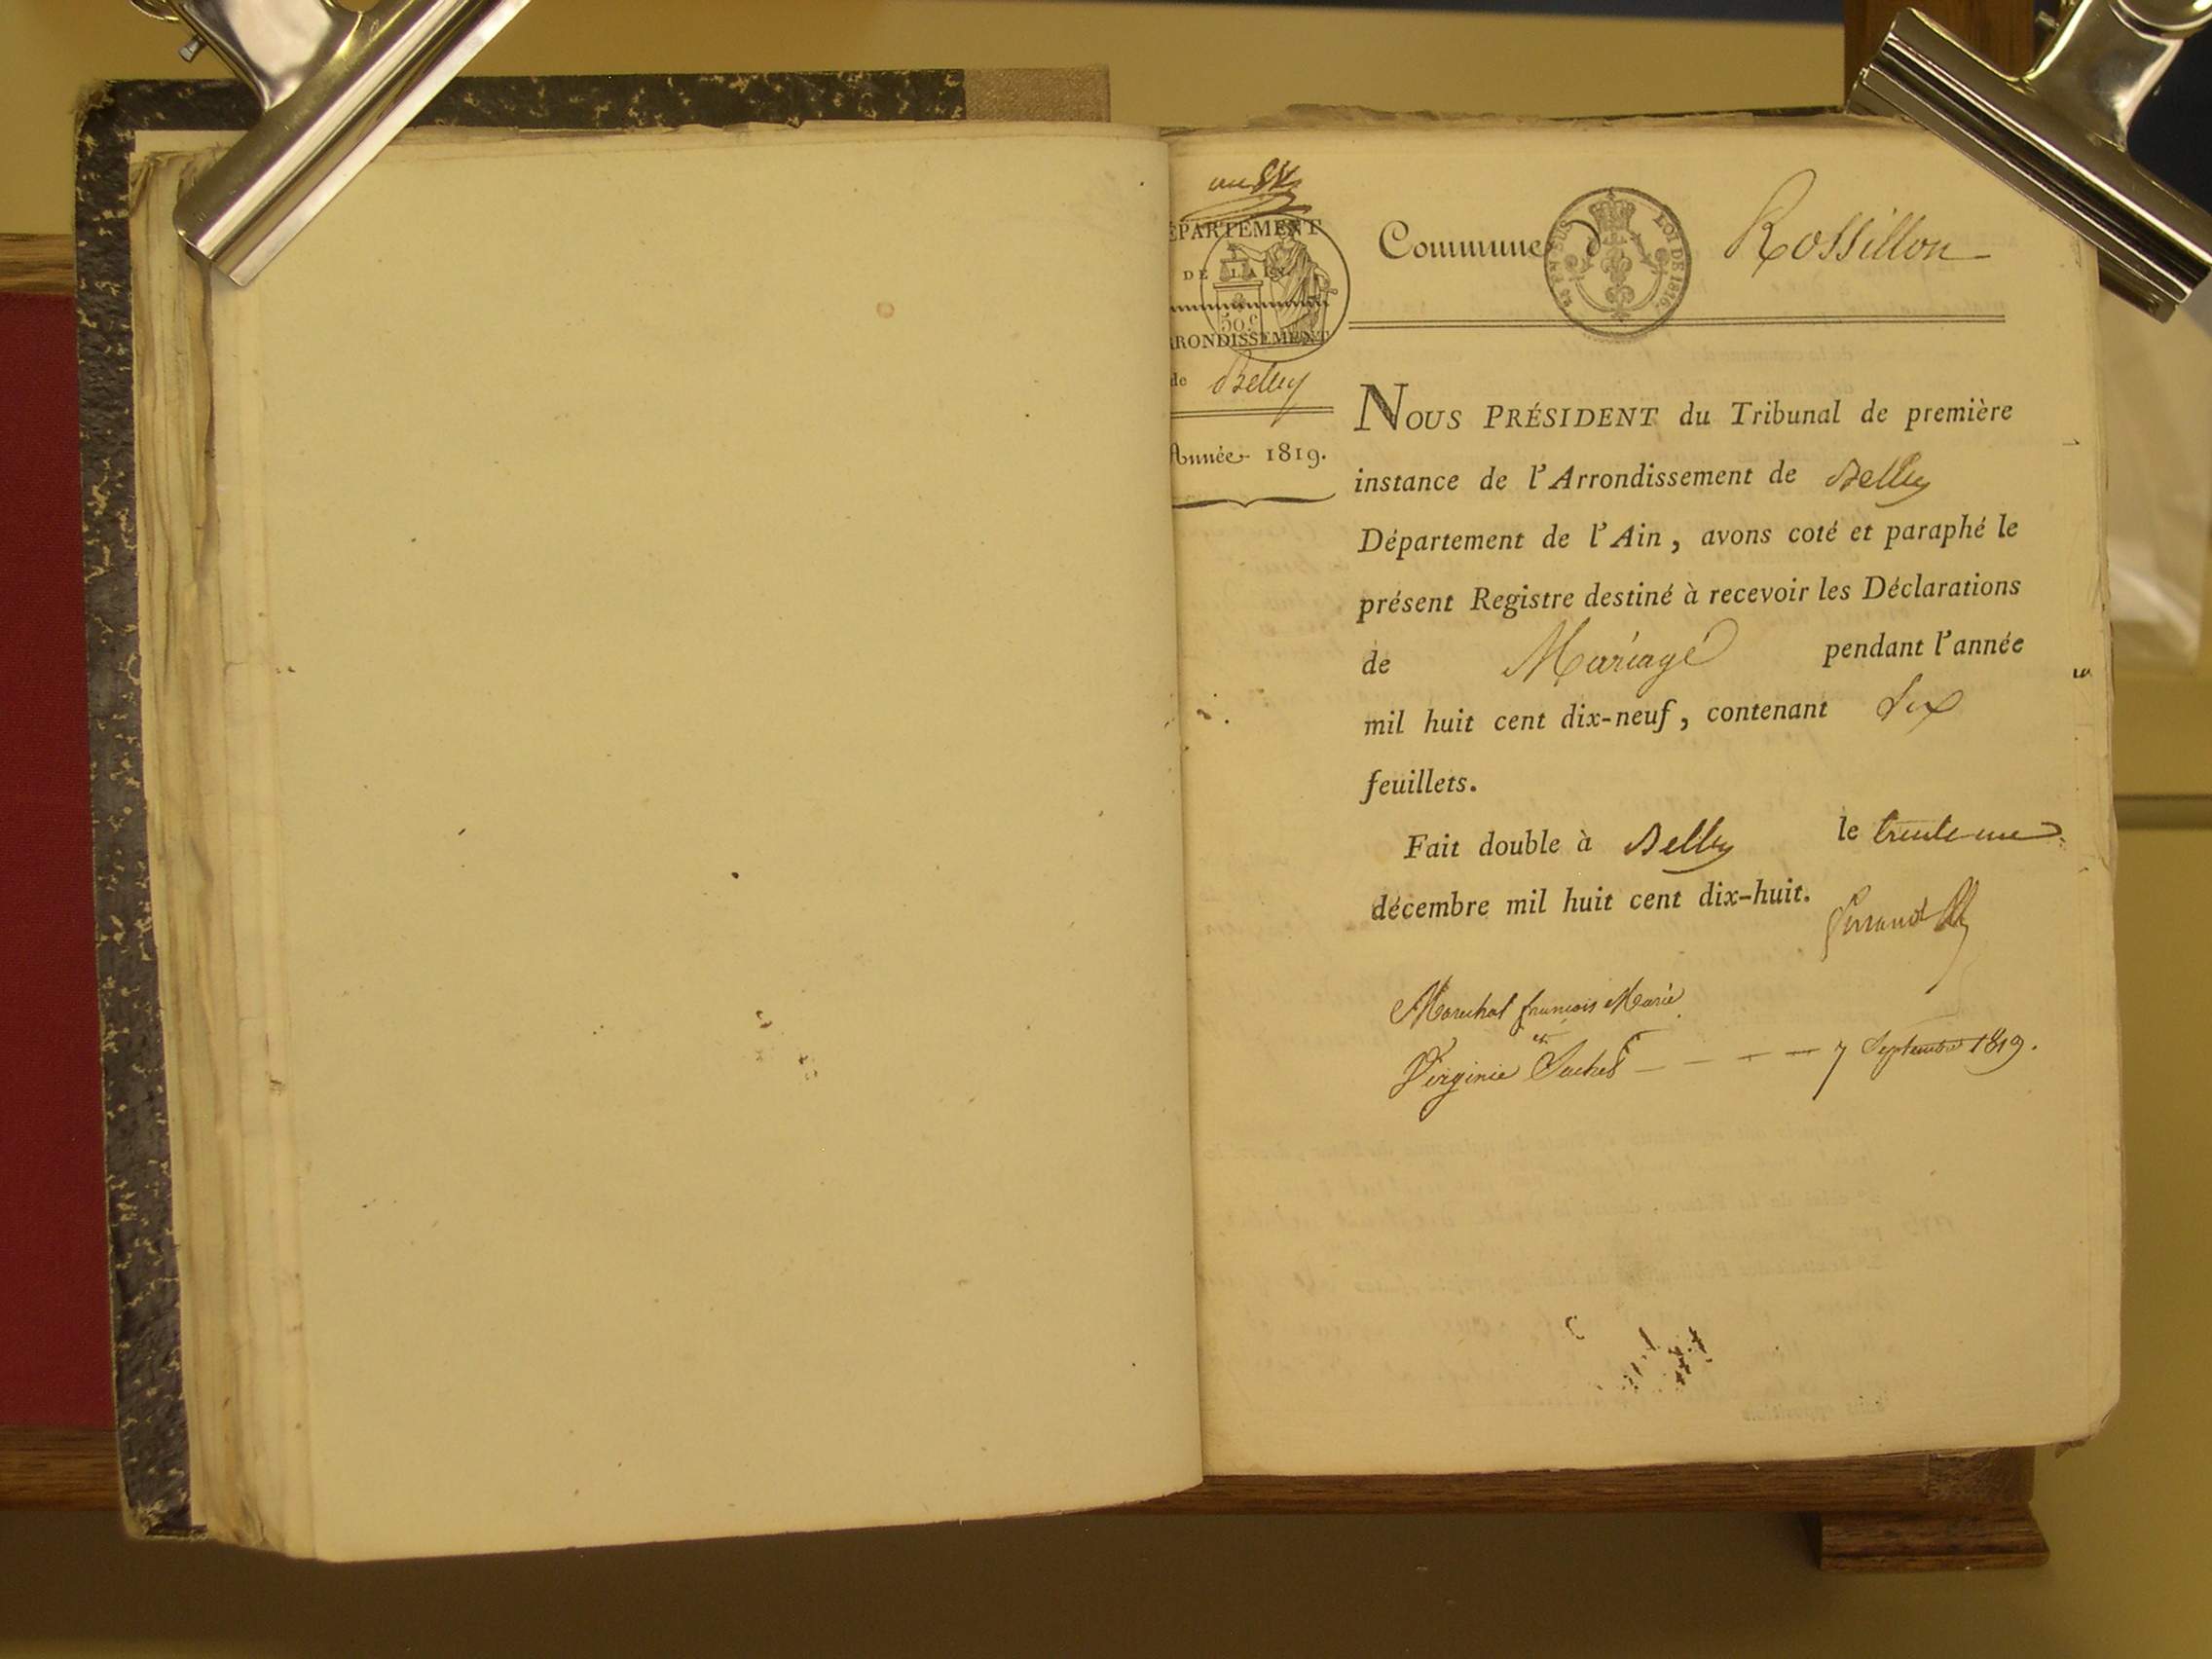 DÉPARTEMENT
DE L'AIN
50 c
ARRONDISSEMENT
de Belley
Année 1819.
Commune de Rossillon
25 P. % EN SUS LOI DE 1816.
NOUS PRÉSIDENT du Tribunal de première
instance de l'Arrondissement de Belley
Département de l'Ain, avons coté et paraphé le
présent Registre destiné à recevoir les Déclarations
de Mariage pendant l'année
mil huit cent dix-neuf, contenant Six
feuillets.
Fait double à Belley le trente un
décembre mil huit cent dix-huit.
Marechal françois Marie
et
Virginie Suchet - - - - 7 Septembre 1819.